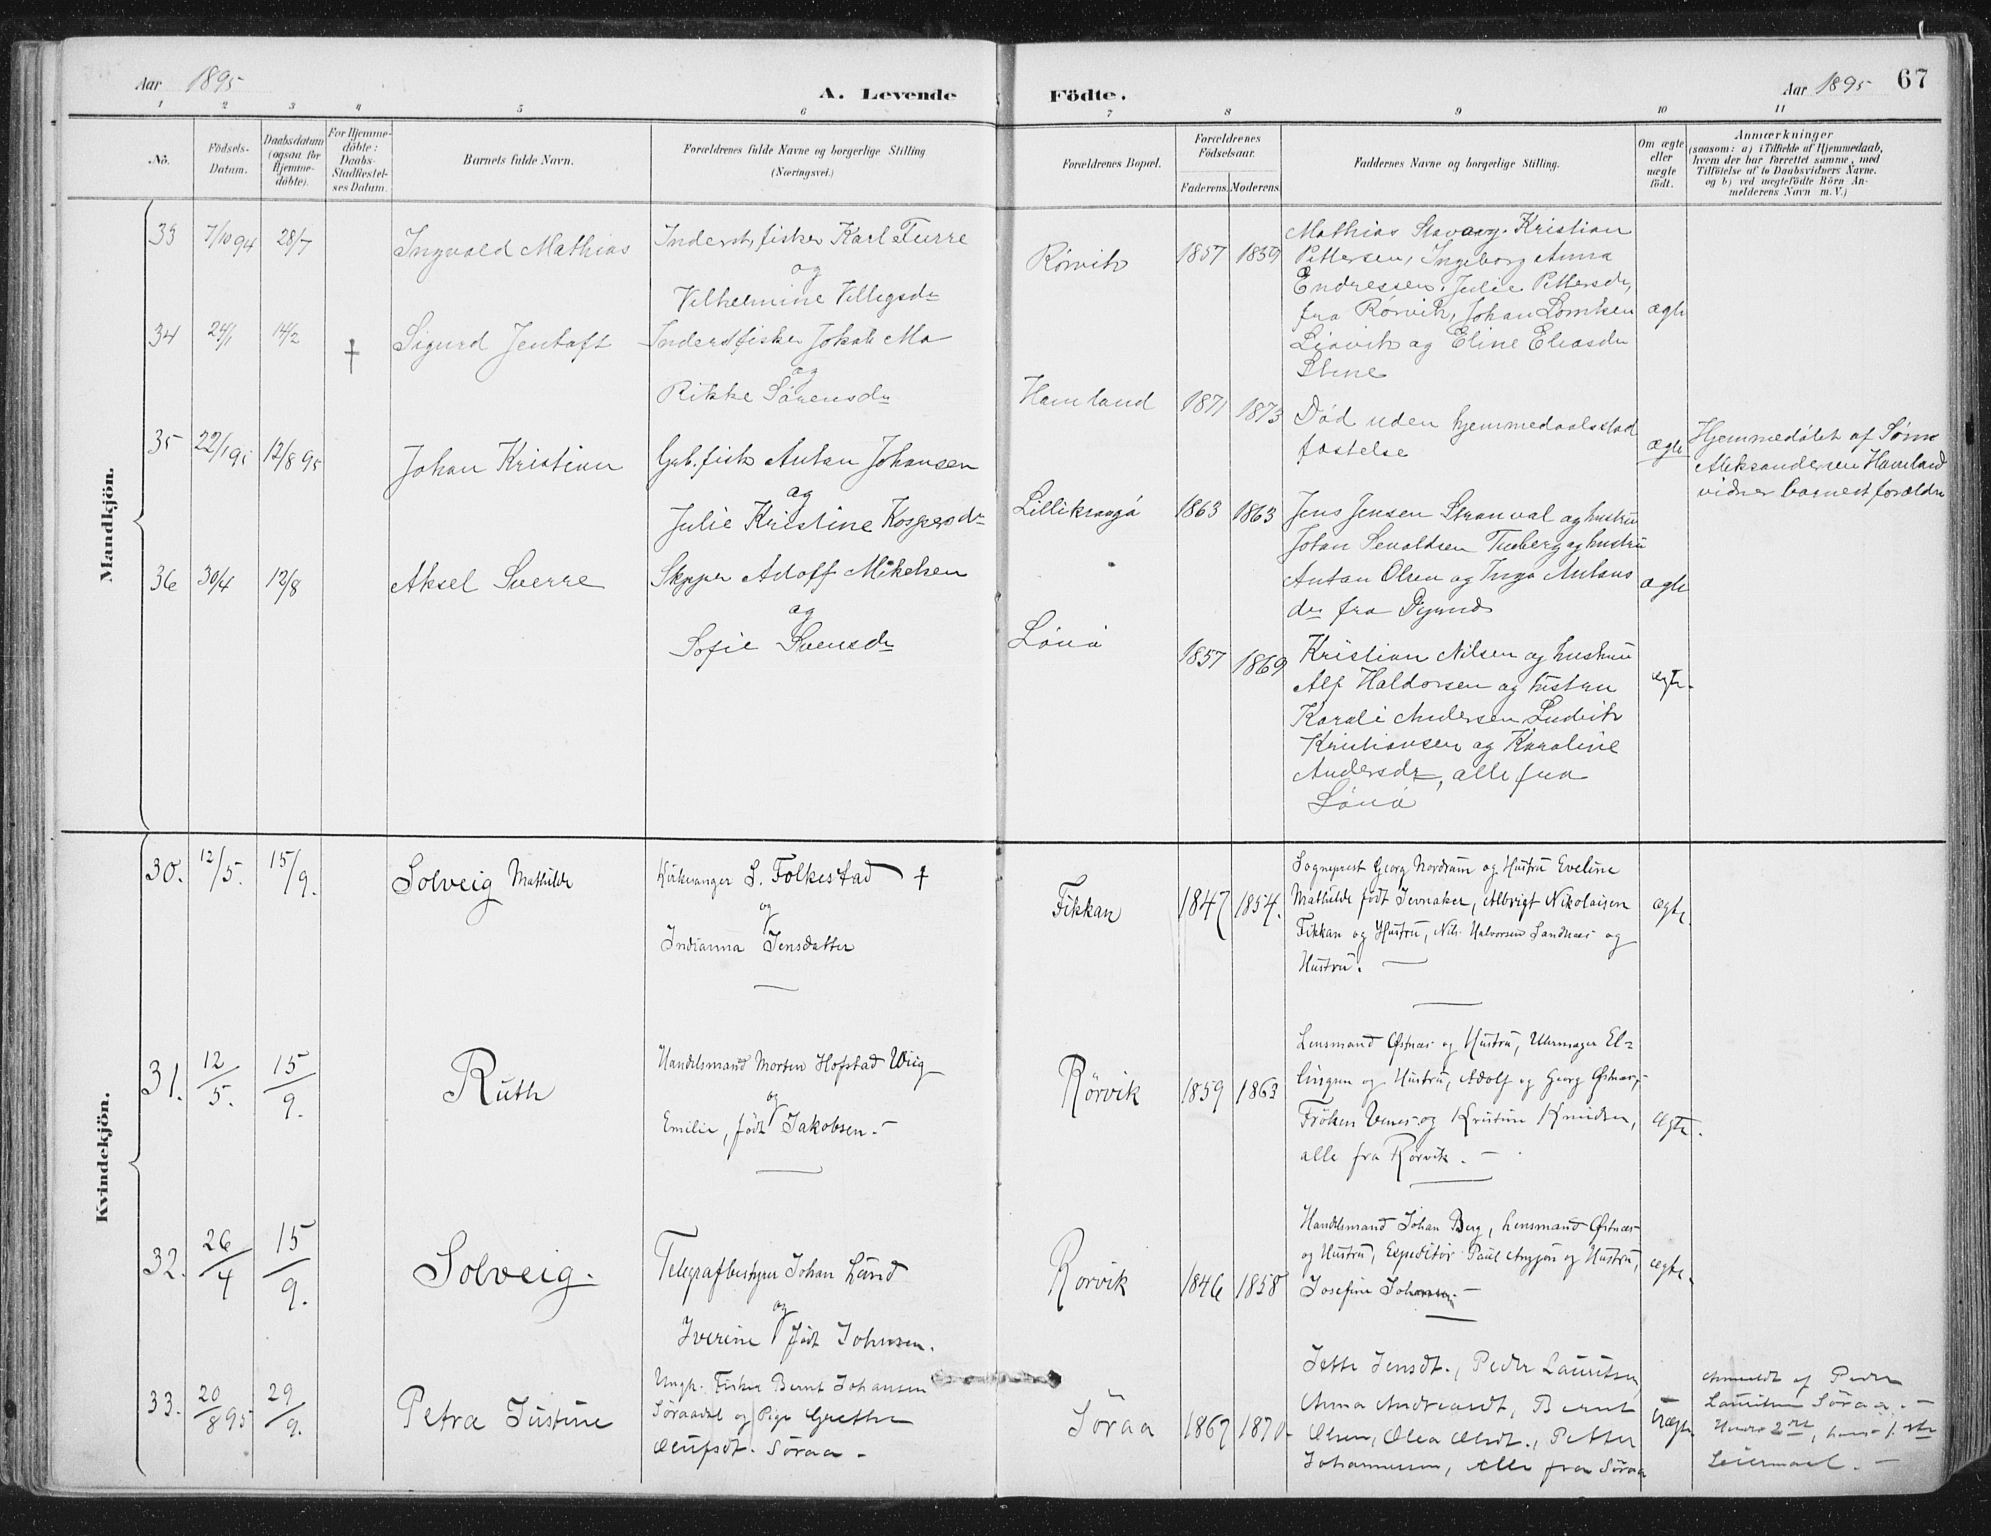 Aar 1895
A. Levende Födte.
Aar 1895 67
1 2 3 4 5 6 7 8 9 10 11
No.
Födsels-Datum.
Daabsdatum (ogsaa for Hjemmedöbte).
For Hjemmedöbte: Daabs-Stadfæstelses Datum.
Barnets fulde Navn.
Forældrenes fulde Navne og borgerlige Stilling
(Næringsvei.)
Forældrenes Bopæl.
Forældrenes Födselsaar.
Faderens. Moderens.
Faddernes Navne og borgerlige Stilling.
Om ægte eller uægte födt.
Anmærkninger
(saasom: a) i Tilfælde af Hjemmedaab, hvem der har forrettet samme, med Tilföielse af to Daabsvidners Navne. og b) ved uægtefödte Börn Anmelderens Navn m. V.)
Mandkjön.
33 7/10 94 28/7 Ingvald Mathias
Inderst, fisker Karl Furre
og
Vilhelmine Villigsdr
Rørvik 1857 1859
Mathias Stavarg. Kristian
Pettersen, Ingeborg Anna
Endressen, Julie Pettersdr,
fra Rørvik, Johan
Leovik og Eline Eliasdr
ægte
34 24/1 14/2 † Sigurd Jentoft
Inderst fisker Jakob Mo
og
Rikke Sørensdr
Hamland 1871 1873
Død uden hjemmedaabsstad
fæstelse
ægte
Hjemmedøbt af Søren
Aleksandersen Hamland
vidner barnets forældre
35 22/1 95 12/8 95 Johan Kristian
Gab. fisk Antan Johansen
og
Julie Kristine Kaspersdr
1863 1863
Jens Jensen og hustru
Johan og hustru
Antan Olsen og Inga Antons
dr fra
ægte
36 30/4 12/8 Aksel Sverre
Skipper Adolf Mikelsen
og
Sofie Svensdr
Lönö 1857 1869
Kristian Nilsen og hustru
Alf Haldorsen og hustru
Karoli Andersen Ludvik
Kristiansen og Karoline
Andersdr, alle fra
Lönö
ægte.
Kvindekjön.
30. 12/5. 15/9. Solveig Mathilde
Kirkesanger S. Folkestad †
og
Indianna Jensdatter
Fikkan 1847 1854.
Sogneprest Georg Nordrum og Hustru Eveline
Mathilde født Jevnaker, Albrigt Nikolaisen
Fikkan og Hustru, Nils Halvorsen Sandnæs og
Hustru. —
ægte.
31. 12/5. 15/9. Ruth
Handelsmand Morten Hofstad Wiig
og
Emilie, født Jakobsen. —
Rørvik 1859 1863
Lensmand Østnæs og Hustru, Uhrmager El-
lingsen og Hustru, Adolf og Georg Østnæs,
Frøken Venes og Kristine Knudsen,
alle fra Rørvik. —
ægte.
32. 26/4 15/9. Solveig.
Telegrafbestyrer Johan Lund
og
Iverine født Johnsen.
Rorvik 1846 1858
Handelsmand Johan Berg, Lensmand Østnæs
og Hustru, Expeditør Paul og Hustru,
Josefine
ægte.
33. 20/8 95 29/9. Petra Justine
Ungk. Fisker Bernt Johansen
Söraadal og Pige Grethe
Olufsdt. Söraa —
Söraa 1867 1870.
Jette Jensdt., Peder Lauritsen,
Anna Andreasdt, Bernt
Olsen, Olea Olsdt., Petter
Johannessen, Alle fra Söraa
Uægte.
Anmeldt af Peder
Lauritsen Söraa. —
Hendes 2det, hans 1ste
Leiermaal. —